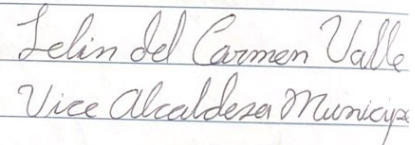 Lelin del Carmen Valle
Vice Alcaldesa Municipa